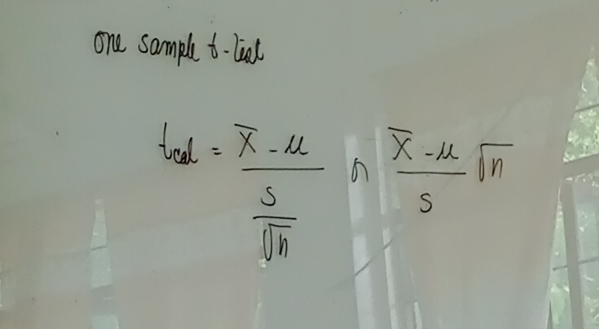 one sample t-test
t_cal = (X̄ - μ) / (s / √n) or (X̄ - μ) / s √n